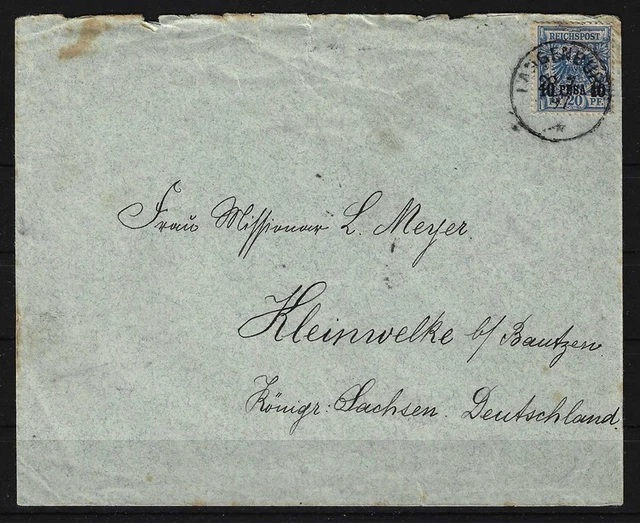 REICHSPOST
LANGENBURG
10 PESA 10
20 PF
97
Frau Missionar L. Meyer
Kleinwelke b/ Bautzen
Königr: Sachsen. Deutschland.